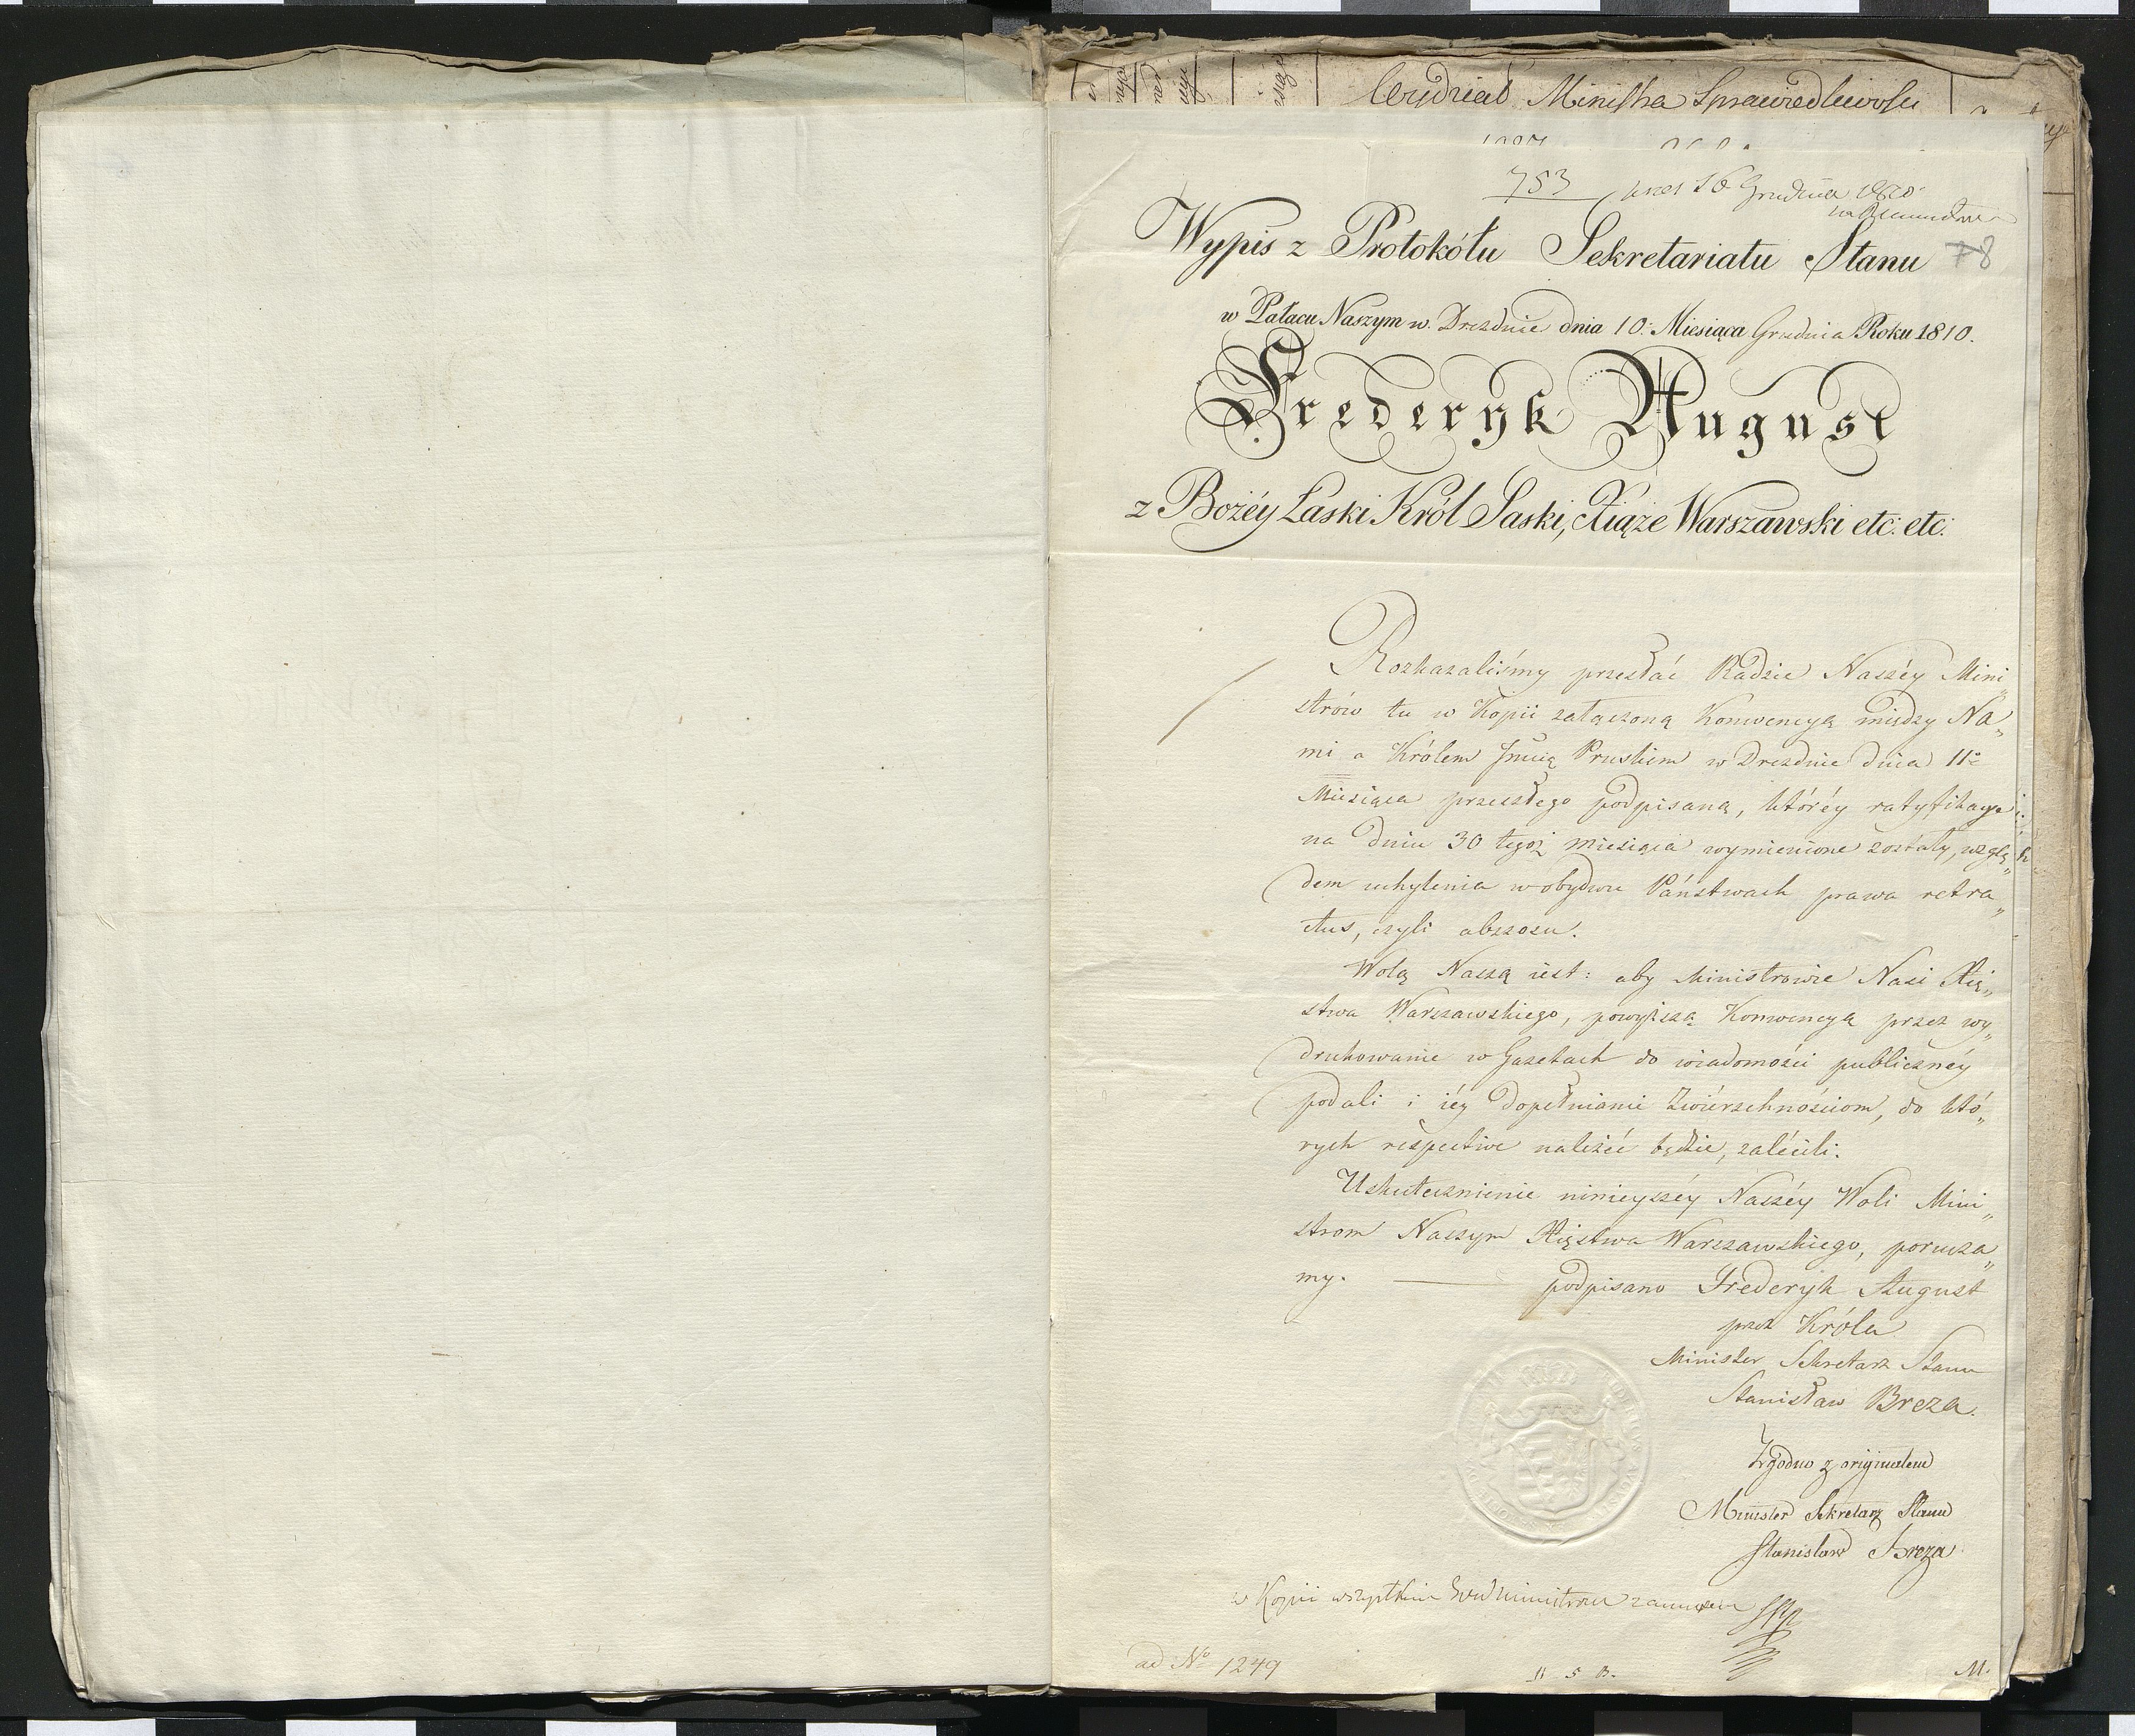 Wydział Ministra Sprawiedliwości
753 pres 16 Grudnia 1810
Wypis z Protokółu Sekretariatu Stanu 78
w Pałacu Naszym w. Dreznie dnia 10. Miesiąca Grudnia Roku 1810.
Frederyk August
z Bożéy Łaski Król Saski, Xiąże Warszawski etc: etc:
Rozkazaliśmy przesłać Radzie Naszéy Mini„
strów tu w Kopii załączoną Konwencyą między Na„
mi a Królem Jmcią Pruskim w Dreznie dnia 11º
Miesiąca przeszłego podpisaną, któréy ratyfikacye
na dniu 30 tegoż miesiąca wymienione zostały, wzglę„
dem uchylenia w obydwu Państwach prawa retra„
ctus, czyli abszosu.
Wolą Naszą iest: aby Ministrowie Nasi Xię„
stwa Warszawskiego, powyższą Konwencyą przez wy„
drukowanie w Gazetach do wiadomości publicznéy
podali i iéy dopełnianie Zwierzchnościom, do któ„
rych respective należéć będzie, zalécili.
Uskutecznienie ninieyszéy Naszéy Woli Mini„
strom Naszym Xięstwa Warszawskiego, porucza„
my. podpisano Frederyk August
przez Króla
Minister Sekretarz Stanu
Stanisław Breza.
Zgodno z originałem
Minister Sekretarz Stanu
Stanisław Breza
w Kopii wszystkim
ad Nº 1249
11 5 B. M.